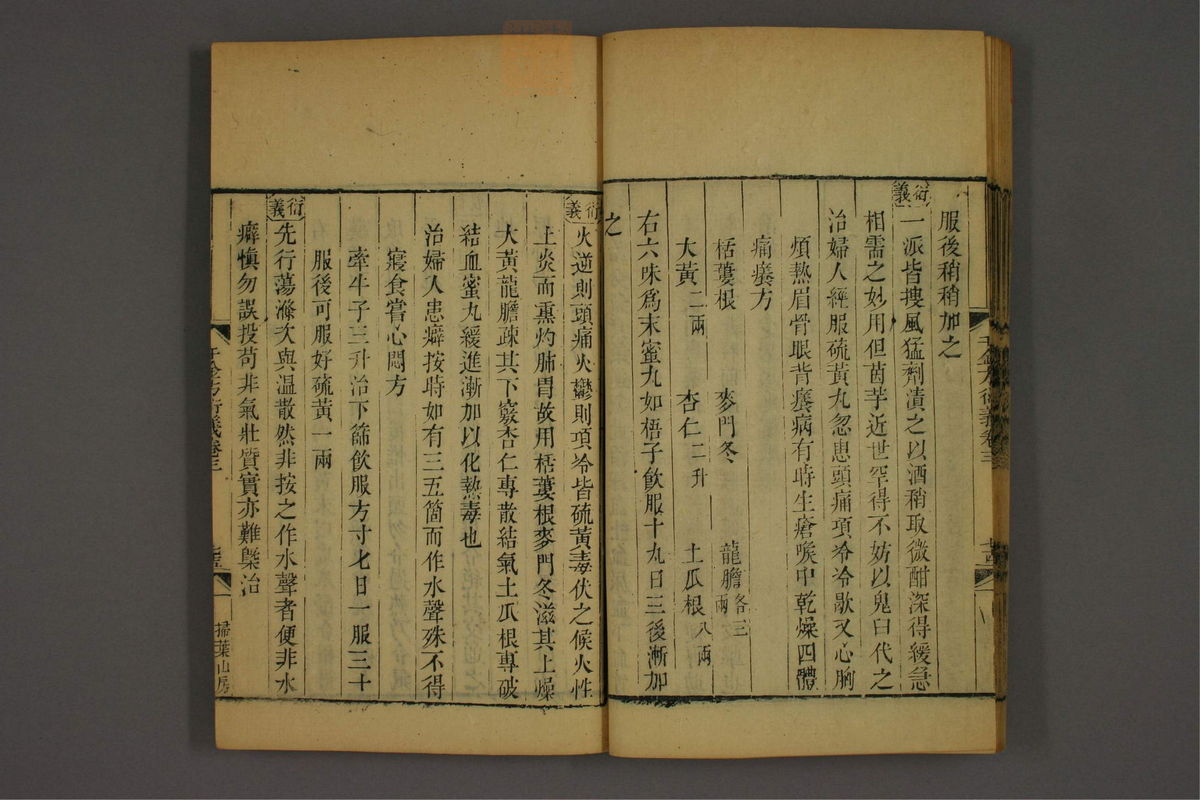 服後稍稍加之
衍義
一派皆搜風猛劑漬之以酒稍取微酣深得緩急
相需之妙用但茵芋近世罕得不妨以鬼臼代之
治婦人經服硫黃丸忽患頭痛項冷冷歇又心胸
煩熱眉骨眼眥癢痛有時生瘡喉中乾燥四體
痛癢方
栝蔞根 麥門冬 龍膽各三兩
大黃二兩 杏仁二升 土瓜根八兩
右六味為末蜜丸如梧子飲服十丸日三後漸加
之
千金方衍義卷三
衍義
火逆則頭痛火鬱則項冷皆硫黃毒伏之候火性
上炎而熏灼肺胃故用栝蔞根麥門冬滋其上燥
大黃龍膽疎其下竅杏仁專散結氣土瓜根專破
結血蜜丸緩進漸加以化熱毒也
治婦人患癖按時如有三五箇而作水聲殊不得
寢食嘗心悶方
牽牛子三升治下篩飲服方寸匕日一服三十
服後可服好硫黃一兩
衍義
先行蕩滌次與溫散然非按之作水聲者便非水
癖慎勿誤投苟非氣壯質實亦難槩治
千金方衍義卷三
掃葉山房